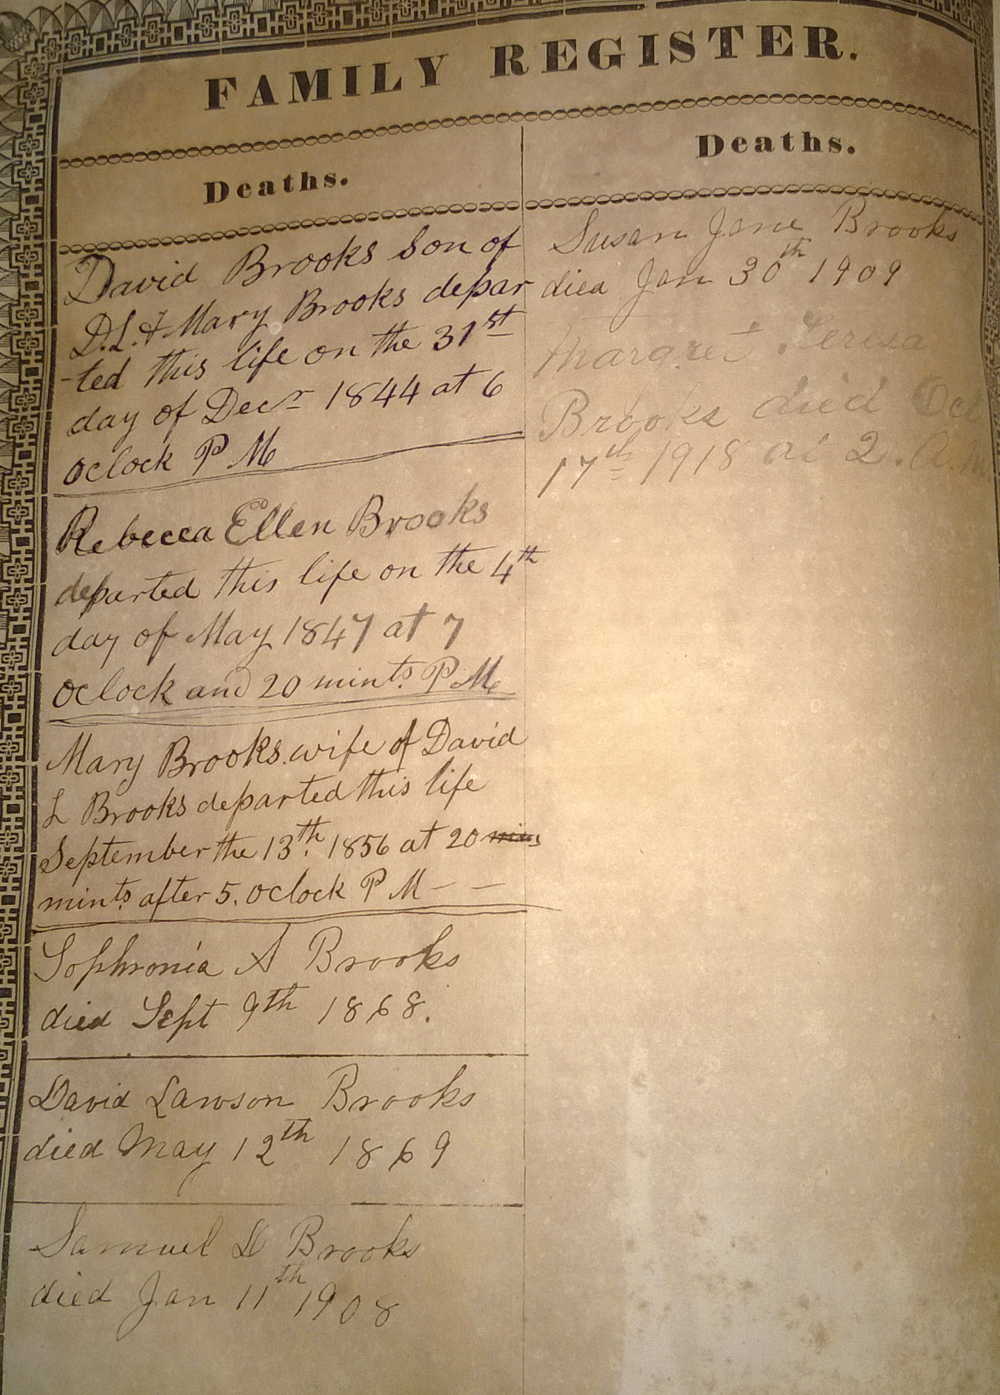 FAMILY REGISTER.
Deaths.
David Brooks Son of
D.L. & Mary Brooks depar
-ted this life on the 31st
day of Decr 1844 at 6
oclock P M
Rebecca Ellen Brooks
departed this life on the 4th
day of May 1847 at 7
oclock and 20 mints. P M
Mary Brooks. wife of David
L Brooks departed this life
September the 13th. 1856 at 20 mins
mints. after 5. oclock P M - -
Sophronia A Brooks
died Sept 9th 1868.
David Lawson Brooks
died May 12th 1869
Samuel D Brooks
died Jan 11th 1908
Deaths.
Susan Jane Brooks
died Jan 30th 1909
Margret Terisa
Brooks died Oct
17th 1918 at 2. a.m